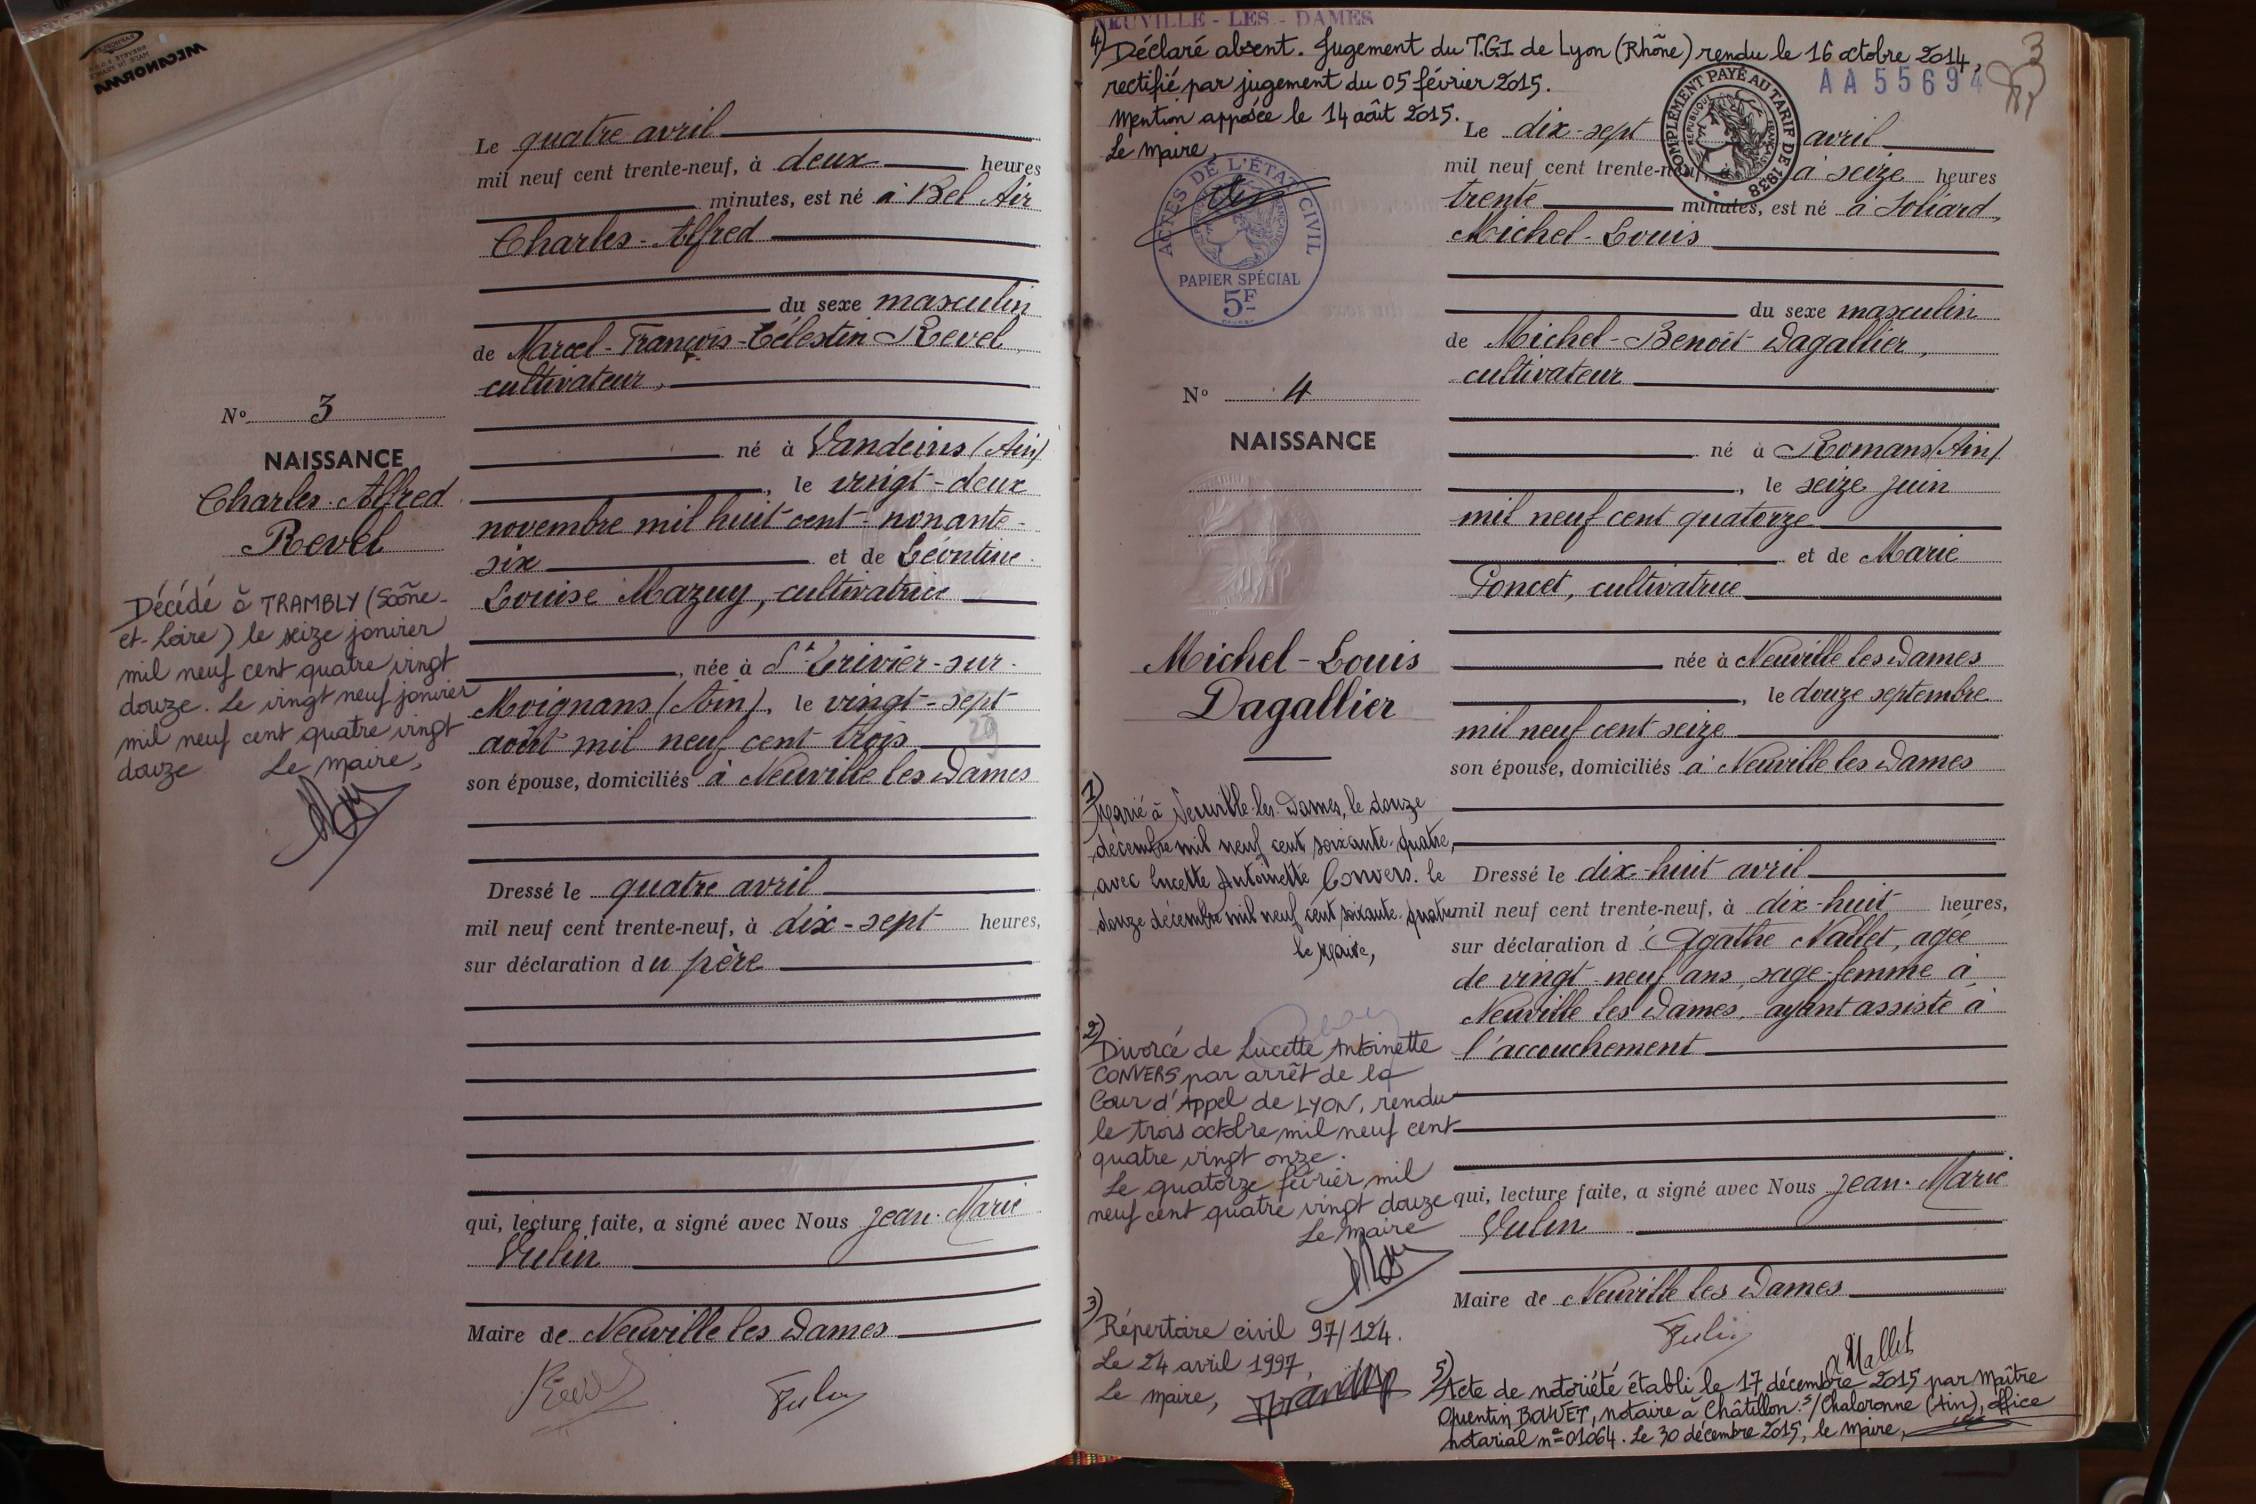 MECANORMA
Le quatre avril
mil neuf cent trente-neuf, à deux heures
minutes, est né à Bel Air
Charles-Alfred
du sexe masculin
de Marcel-François-Célestin Revel,
cultivateur,
né à Vandeins (Ain)
, le vingt-deux
novembre mil huit cent nonante-
six et de Léontine
Louise Mazuy, cultivatrice
, née à St Trivier-sur-
Moignans (Ain), le vingt-sept
août mil neuf cent trois
29
son épouse, domiciliés à Neuville les Dames
Dressé le quatre avril
mil neuf cent trente-neuf, à dix-sept heures,
sur déclaration du père
qui, lecture faite, a signé avec Nous Jean-Marie
Vulin
Maire de Neuville les Dames
Revel
Vulin
No 3
NAISSANCE
Charles-Alfred
Revel
Décédé à TRAMBLY (Saône-
et-Loire) le seize janvier
mil neuf cent quatre vingt
douze. Le vingt neuf janvier
mil neuf cent quatre vingt
douze Le Maire,
NEUVILLE-LES-DAMES
4) Déclaré absent. Jugement du T.G.I de Lyon (Rhône) rendu le 16 octobre 2014,
rectifié par jugement du 05 février 2015.
Mention apposée le 14 août 2015.
Le Maire,
3
AA55694
COMPLÉMENT PAYÉ AU TARIF DE 1938
ACTES DE L'ÉTAT CIVIL
PAPIER SPÉCIAL
5F
Le dix-sept avril
mil neuf cent trente-neuf, à seize heures
trente minutes, est né à Soliard,
Michel-Louis
du sexe masculin
de Michel-Benoit Dagallier,
cultivateur
né à Romans (Ain)
, le seize juin
mil neuf cent quatorze
et de Marie
Poncet, cultivatrice
née à Neuville les Dames
, le douze septembre
mil neuf cent seize
son épouse, domiciliés à Neuville les Dames
Dressé le dix-huit avril
mil neuf cent trente-neuf, à dix-huit heures,
sur déclaration d'Agathe Nallet, agée
de vingt-neuf ans, sage-femme à
Neuville les Dames, ayant assisté à
l'accouchement
qui, lecture faite, a signé avec Nous Jean-Marie
Vulin
Maire de Neuville les Dames
Vulin
A Nallet
No 4
NAISSANCE
Michel-Louis
Dagallier
1) Marié à Neuville-les-Dames, le douze
décembre mil neuf cent soixante-quatre,
avec Lucette Antoinette Convers. le
douze décembre mil neuf cent soixante-quatre
le Maire,
2) Divorcé de Lucette Antoinette
CONVERS par arrêt de la
Cour d'Appel de LYON, rendu
le trois octobre mil neuf cent
quatre vingt onze.
Le quatorze février mil
neuf cent quatre vingt douze
Le Maire
3) Répertoire civil 97/124.
Le 24 avril 1997,
Le Maire,
5) Acte de notoriété établi le 17 décembre 2015 par Maître
Quentin BOUVET, notaire à Châtillon s/Chalaronne (Ain), office
notarial n° 01064. Le 30 décembre 2015, le Maire,